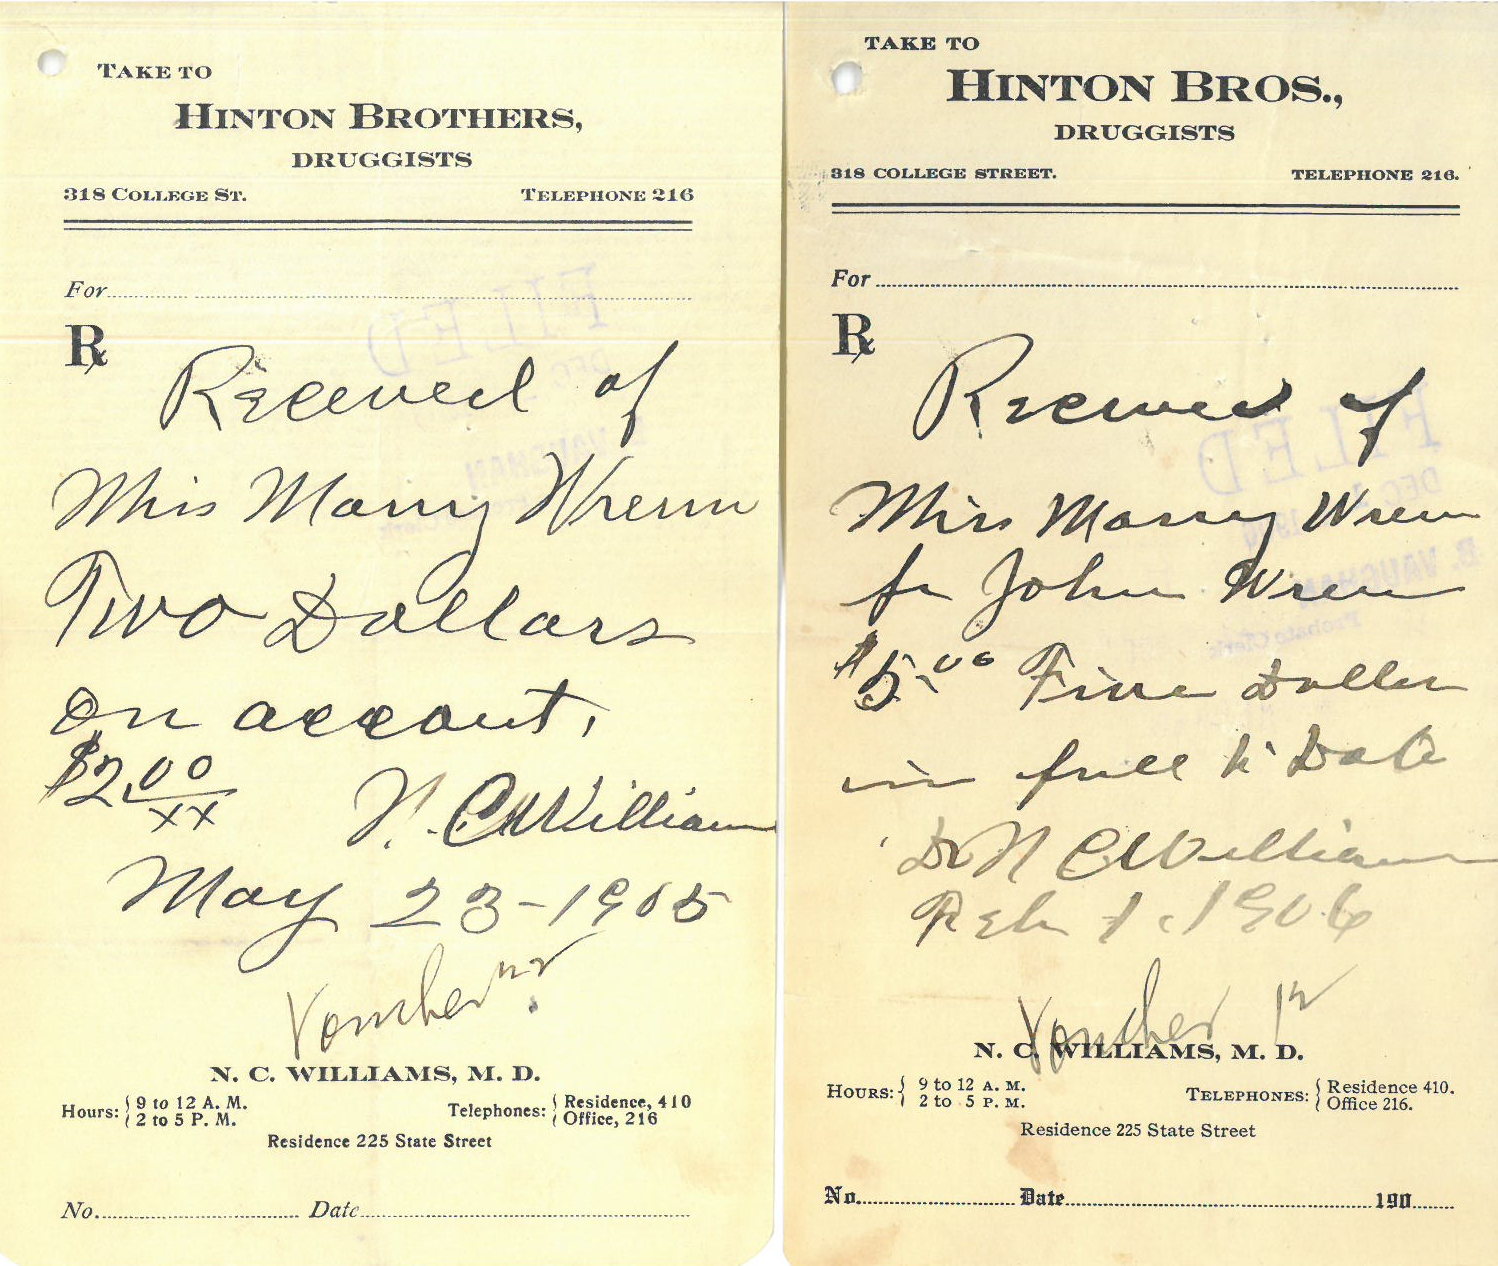 TAKE TO
HINTON BROTHERS,
DRUGGISTS
318 COLLEGE ST. TELEPHONE 216
For
℞
Received of
Miss Marry Wrenn
Two Dollars
on accout,
$2.00/xx N. C. Williams
May 23-1905
Voucher
N. C. WILLIAMS, M. D.
Hours: { 9 to 12 A. M. Telephones: { Residence, 410
{ 2 to 5 P. M. { Office, 216
Residence 225 State Street
No. Date
TAKE TO
HINTON BROS.,
DRUGGISTS
318 COLLEGE STREET. TELEPHONE 216.
For
℞
Received of
Miss Marry Wrenn
for John Wrenn
$5.00 Five Dollars
in full to Date
Dr N C Williams
Feb 1. 1906
Voucher
N. C. WILLIAMS, M. D.
HOURS: { 9 to 12 A. M. TELEPHONES: { Residence 410.
{ 2 to 5 P. M. { Office 216.
Residence 225 State Street
No. Date 190
FILED
DEC
VAUGHAN
FILED
DEC
B. VAUGHAN
Probate Clerk